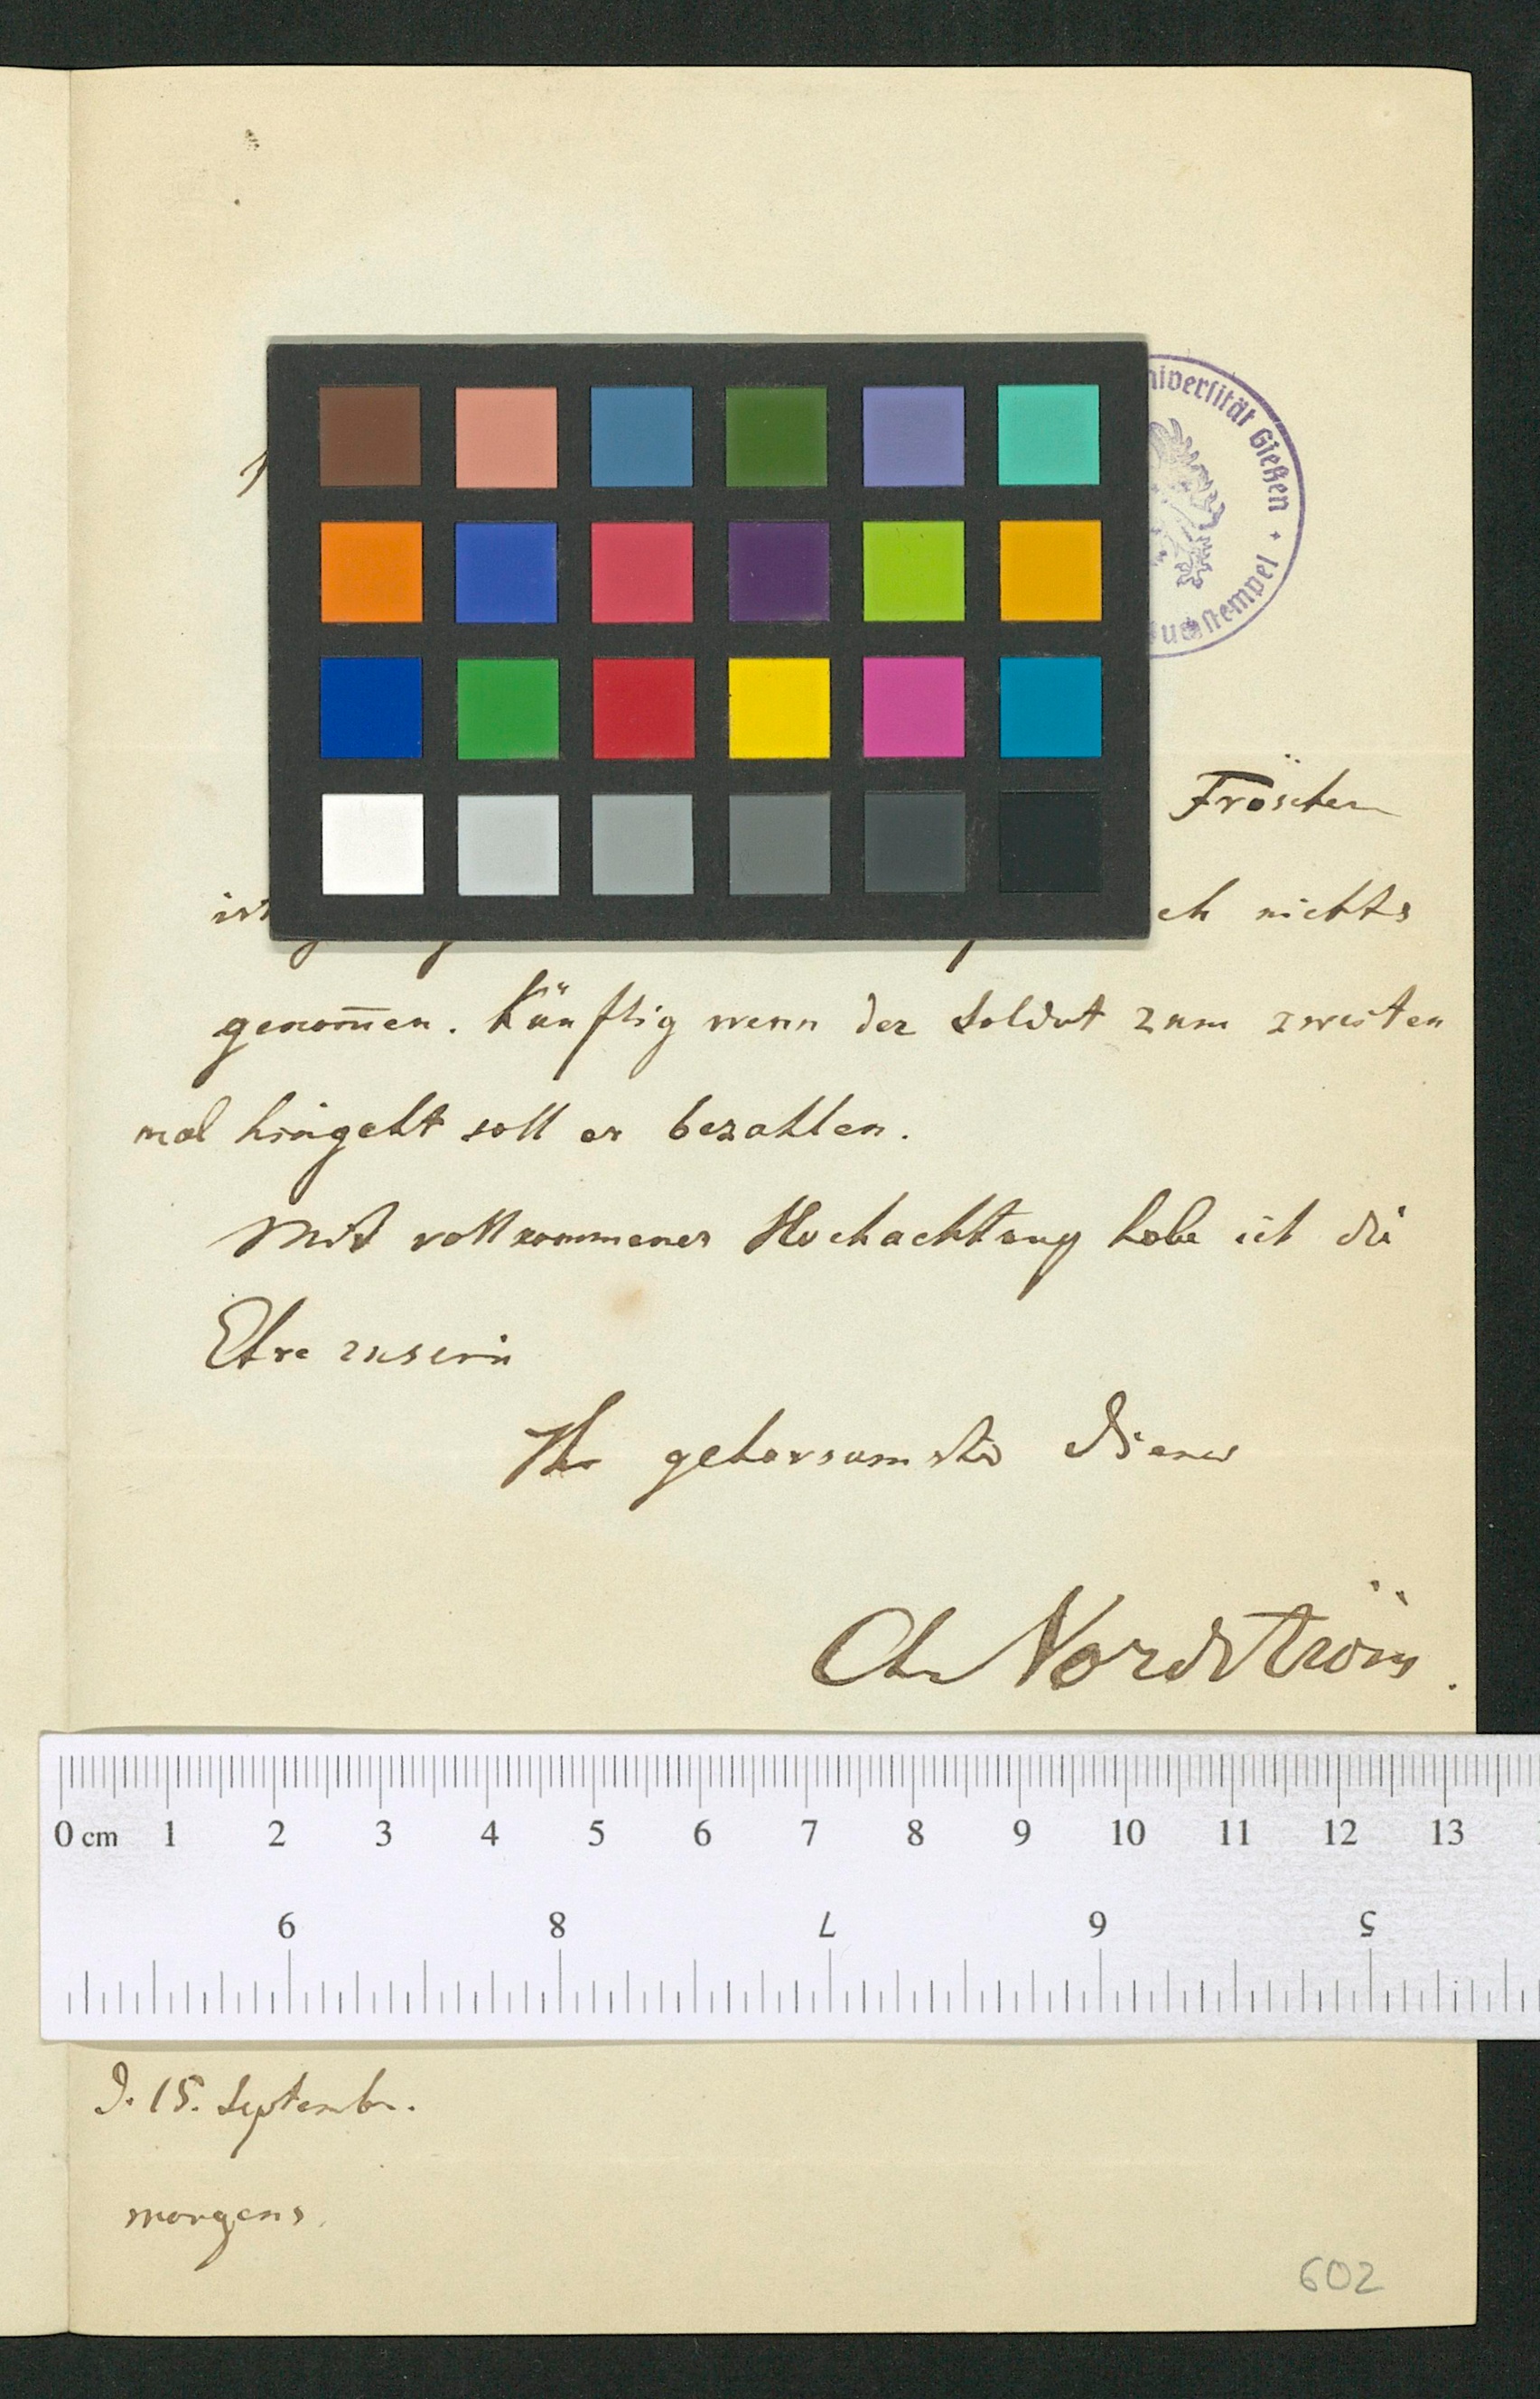 niversität Gießen
stempel
Fröschen
ist
ch nichts
genom̅en. Künftig wenn der Soldat zum zweiten
mal hingeht soll er bezahlen.
Mit vollkommener Hochachtung habe ich die
Ehre zu sein
Ihr gehorsamster Diener
Chr Nordström.
0 cm 1 2 3 4 5 6 7 8 9 10 11 12 13
9 8 7 6 5
D. 15. Septembr.
morgens.
602